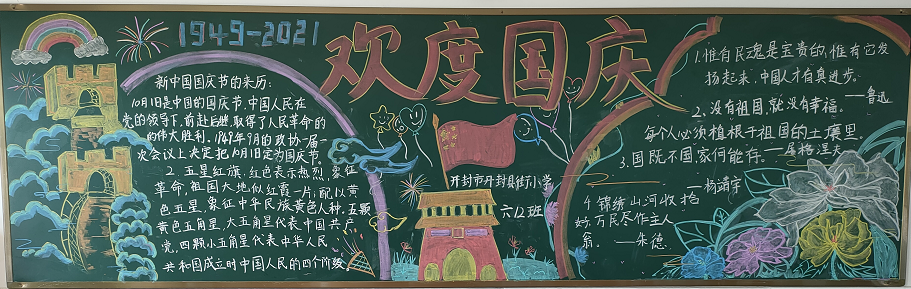 1949-2021
欢度国庆
新中国国庆节的来历:
10月1日是中国的国庆节,中国人民在
党的领导下,前赴后继,取得了人民革命的
的伟大胜利.1949年9月的政协一届一
次会议上决定把10月1日定为国庆节。
2.五星红旗,红色表示热烈,象征
革命,祖国大地似红霞一片,配以黄
色五星,象征中华民族黄色人种.五颗
黄色五角星,大五角星代表中国共产
党,四颗小五角星代表中华人民
共和国成立时中国人民的四个阶级
开封市开封县街小学
六(2)班
1.惟有民魂是宝贵的,惟有它发
扬起来,中国人才有真进步。
——鲁迅
2.没有祖国,就没有幸福。
每个人必须植根于祖国的土壤里。
——屠格涅夫
3.国既不国,家何能存。
——杨靖宇
4.锦绣山河收拾
好,万民尽作主人
翁。——朱德